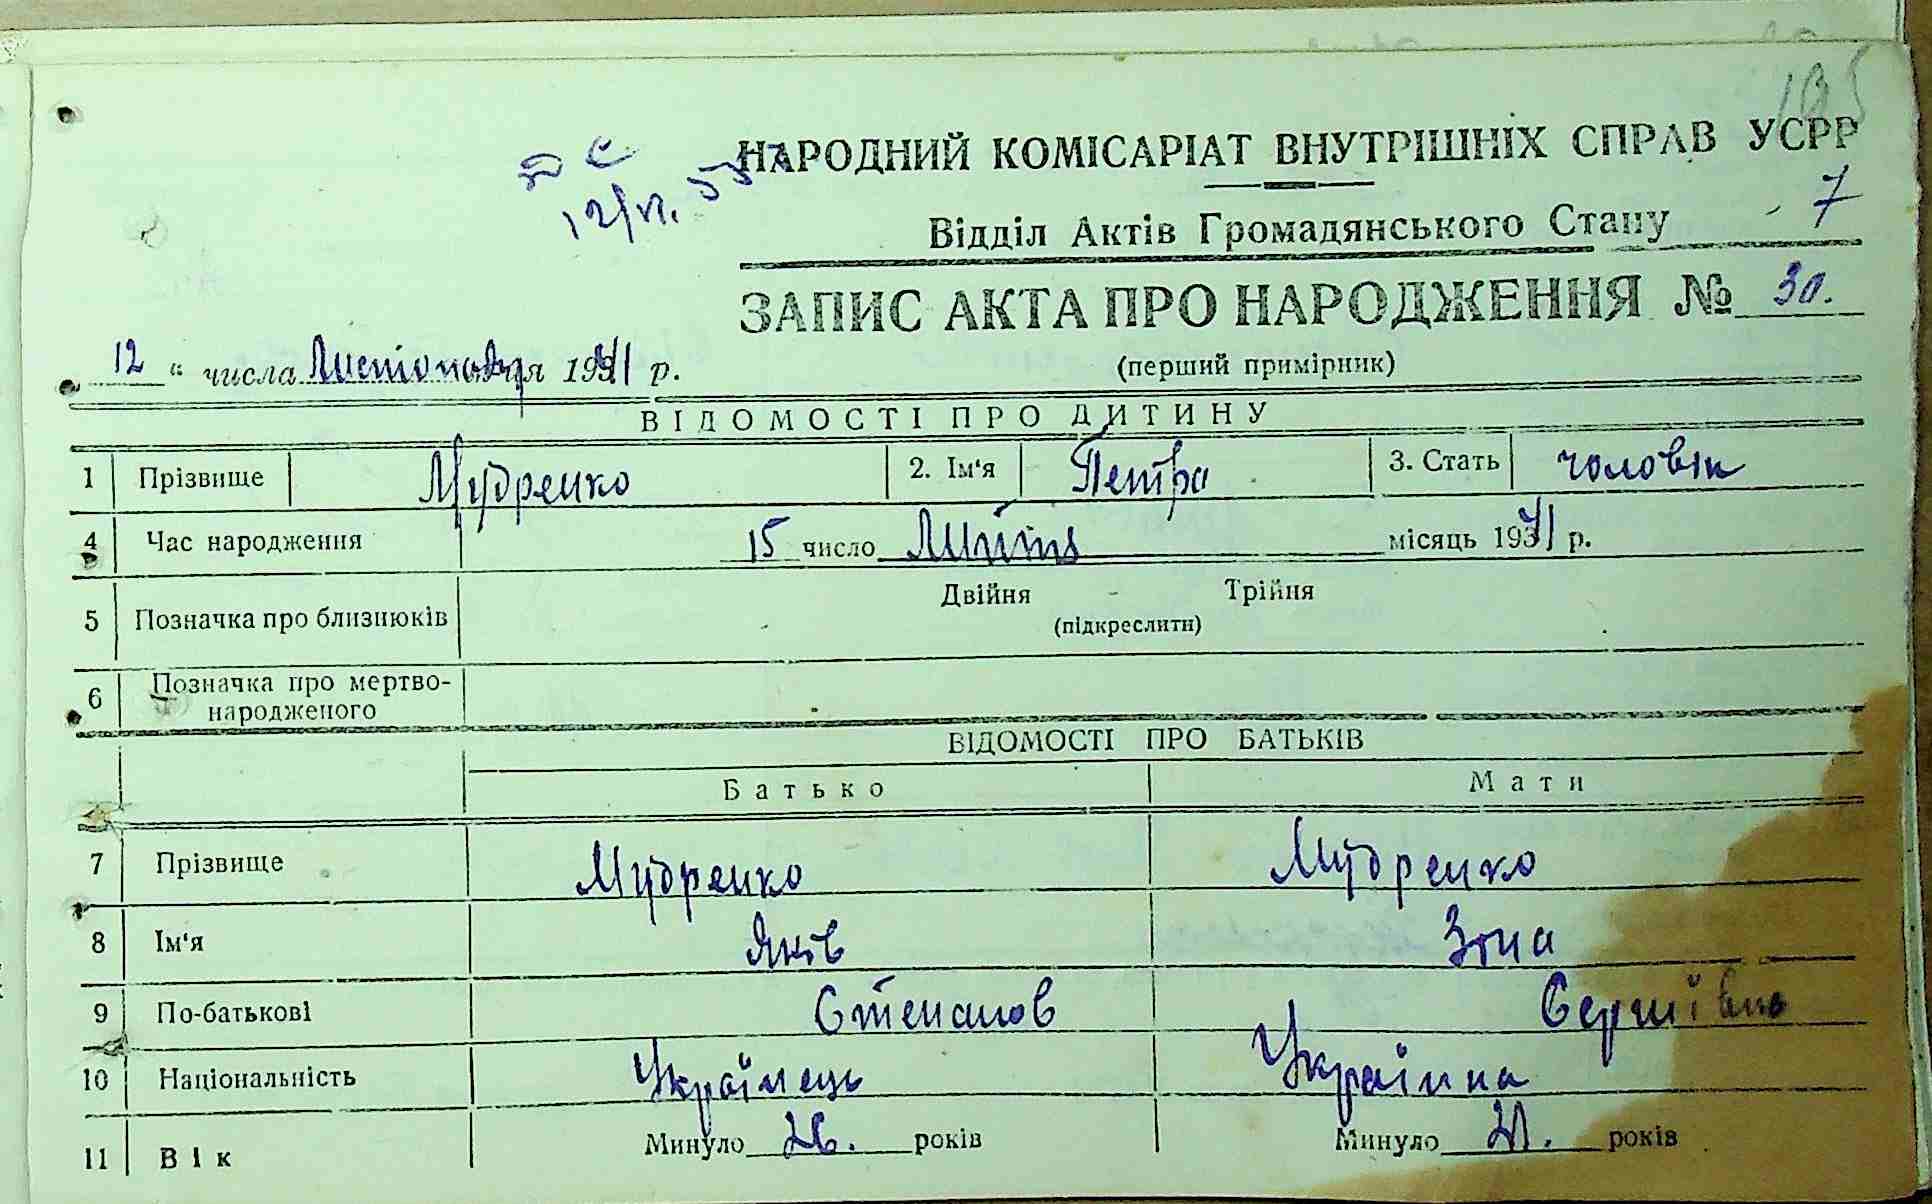 195
НАРОДНИЙ КОМІСАРІАТ ВНУТРІШНІХ СПРАВ УСРР
7
Відділ Актів Громадянського Стану
ЗАПИС АКТА ПРО НАРОДЖЕННЯ № 30.
12 " числа Листопада 1941 р.
(перший примірник)
ВІДОМОСТІ ПРО ДИТИНУ
1 Прізвище Мудренко 2. Ім'я Петро 3. Стать чоловік
4 Час народження 15 число місяць 1941 р.
5 Позначка про близнюків Двійня - Трійня
(підкреслити)
6 Позначка про мертво-
народженого
ВІДОМОСТІ ПРО БАТЬКІВ
Батько Мати
7 Прізвище Мудренко Мудренко
8 Ім'я Яків Зоя
9 По-батькові Степанов Сергіївна
10 Національність Українець Українка
11 Вік Минуло 26. років Минуло років